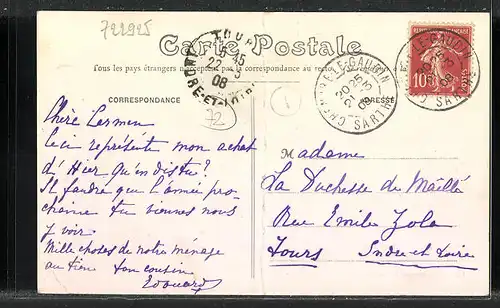 722925
Carte Postale
Tous les pays étrangers n'acceptent pas la correspondance au recto
CORRESPONDANCE
ADRESSE
TOURS
22 3
08
INDRE-ET-LOIRE
CHEMIRÉ-LE-GAUDIN
SARTHE
CHEMIRÉ-LE-GAUDIN
08
SARTHE
10c
72
1
Chère
Ceci représente mon achat
d'Hier Qu'en dis tu?
Il faudra que l'année pro-
chaine tu viennes nous
y voir.
Mille choses de notre ménage
au tien ton cousin
Edouard
Madame
La Duchesse de Maillé
Rue Emile Zola
Tours Indre et Loire